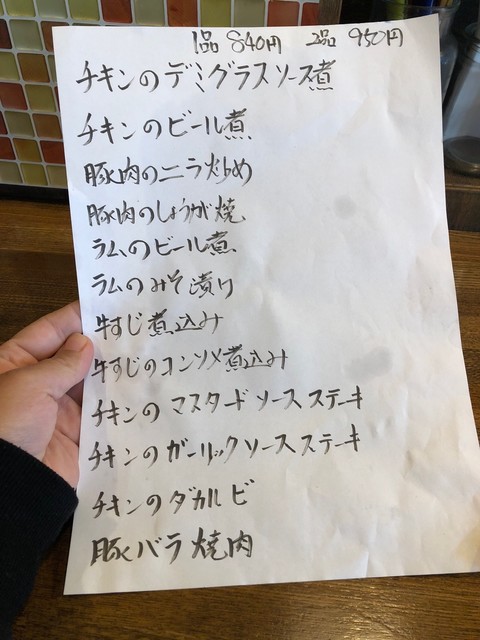 1品 840円 2品 950円
チキンのデミグラスソース煮
チキンのビール煮
豚肉のニラ炒め
豚肉のしょうが焼
ラムのビール煮
ラムのみそ漬け
牛すじ煮込み
牛すじのコンソメ煮込み
チキンの マスタードソースステーキ
チキンの ガーリックソースステーキ
チキンのダカルビ
豚バラ焼肉